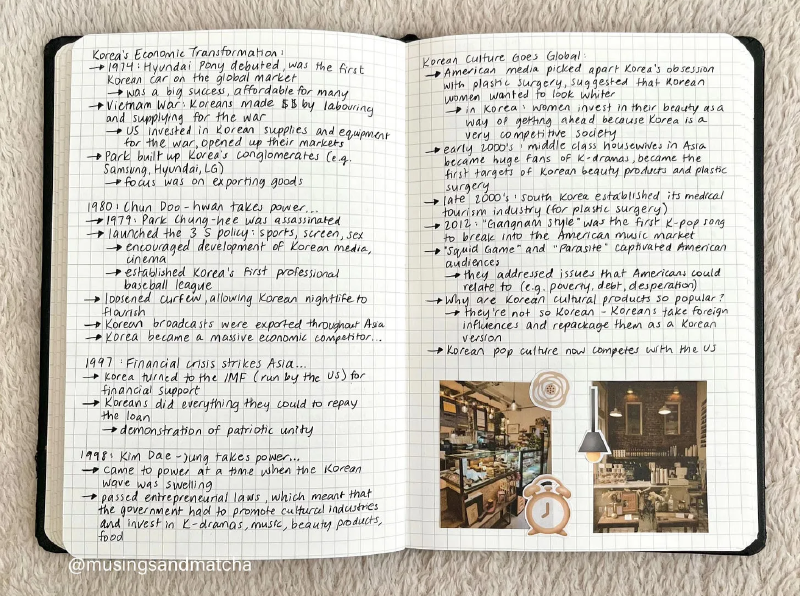 Korea's Economic Transformation:
→ 1974: Hyundai Pony debuted, was the first
Korean car on the global market
→ was a big success, affordable for many
→ Vietnam War: Koreans made $$ by labouring
and supplying for the war
→ US invested in Korean supplies and equipment
for the war, opened up their markets
→ Park built up Korea's conglomerates (e.g.
Samsung, Hyundai, LG)
→ focus was on exporting goods
1980: Chun Doo-hwan takes power...
→ 1979: Park Chung-hee was assassinated
→ launched the 3 S policy: sports, screen, sex
→ encouraged development of Korean media,
cinema
→ established Korea's first professional
baseball league
→ loosened curfew, allowing Korean nightlife to
flourish
→ Korean broadcasts were exported throughout Asia
→ Korea became a massive economic competitor...
1997: Financial crisis strikes Asia...
→ Korea turned to the IMF (run by the US) for
financial support
→ Koreans did everything they could to repay
the loan
→ demonstration of patriotic unity
1998: Kim Dae-jung takes power...
→ came to power at a time when the Korean
wave was swelling
→ passed entrepreneurial laws, which meant that
the government had to promote cultural industries
and invest in K-dramas, music, beauty products,
food
Korean Culture Goes Global:
→ American media picked apart Korea's obsession
with plastic surgery, suggested that Korean
women wanted to look whiter
→ in Korea: women invest in their beauty as a
way of getting ahead because Korea is a
very competitive society
→ early 2000's: middle class housewives in Asia
became huge fans of K-dramas, became the
first targets of Korean beauty products and plastic
surgery
→ late 2000's: South Korea established its medical
tourism industry (for plastic surgery)
→ 2012: "Gangnam Style" was the first K-pop song
to break into the American music market
→ "Squid Game" and "Parasite" captivated American
audiences
→ they addressed issues that Americans could
relate to (e.g. poverty, debt, desperation)
→ Why are Korean cultural products so popular?
→ they're not so Korean - Koreans take foreign
influences and repackage them as a Korean
version
→ Korean pop culture now competes with the US
@musingsandmatcha